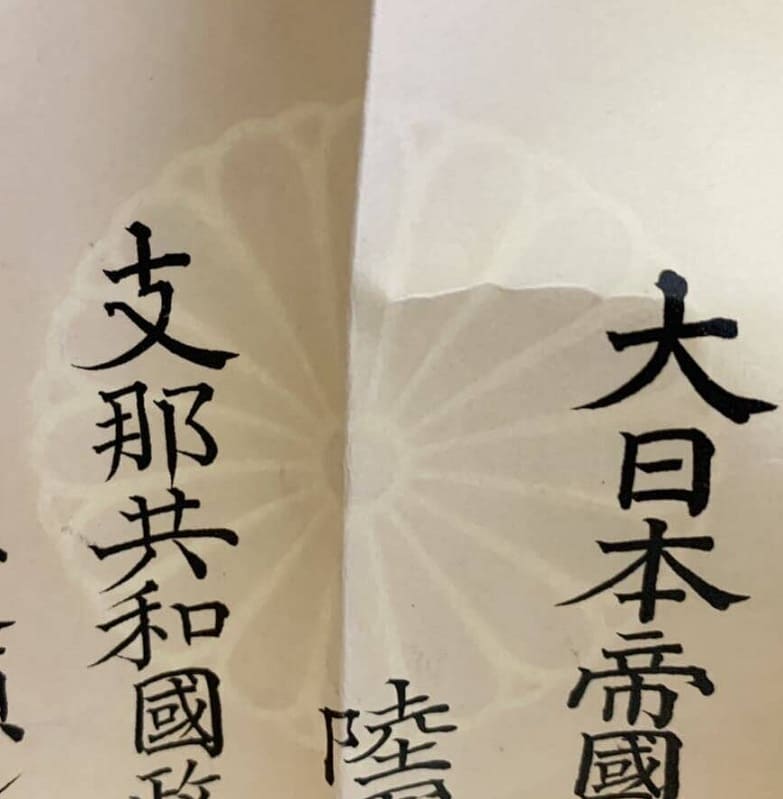 大日本帝國
陸
支那共和國政